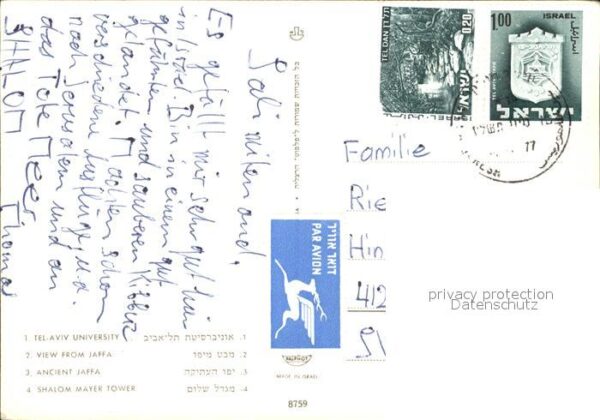 Sali mitenand,
Es gefällt mir sehr gut hier
in Israel. Bin in einem gut
geführten und sauberen Kibbuz
gelandet. Machten schon
verschiedene Ausflüge u.a.
nach Jerusalem und an
das Tote Meer.
SHALOM Thomas
Familie
Rie
Hin
412
privacy protection
Datenschutz
0.20
TEL DAN תל דן
ישראל
1.00
ISRAEL
اسرائيل
ישראל
77
דואר אויר
PAR AVION
PALPHOT
MADE IN ISRAEL
8759
1 TEL-AVIV UNIVERSITY אוניברסיטת תל־אביב .1
2. VIEW FROM JAFFA מבט מיפו .2
3 ANCIENT JAFFA יפו העתיקה .3
4 SHALOM MAYER TOWER מגדל שלום -4